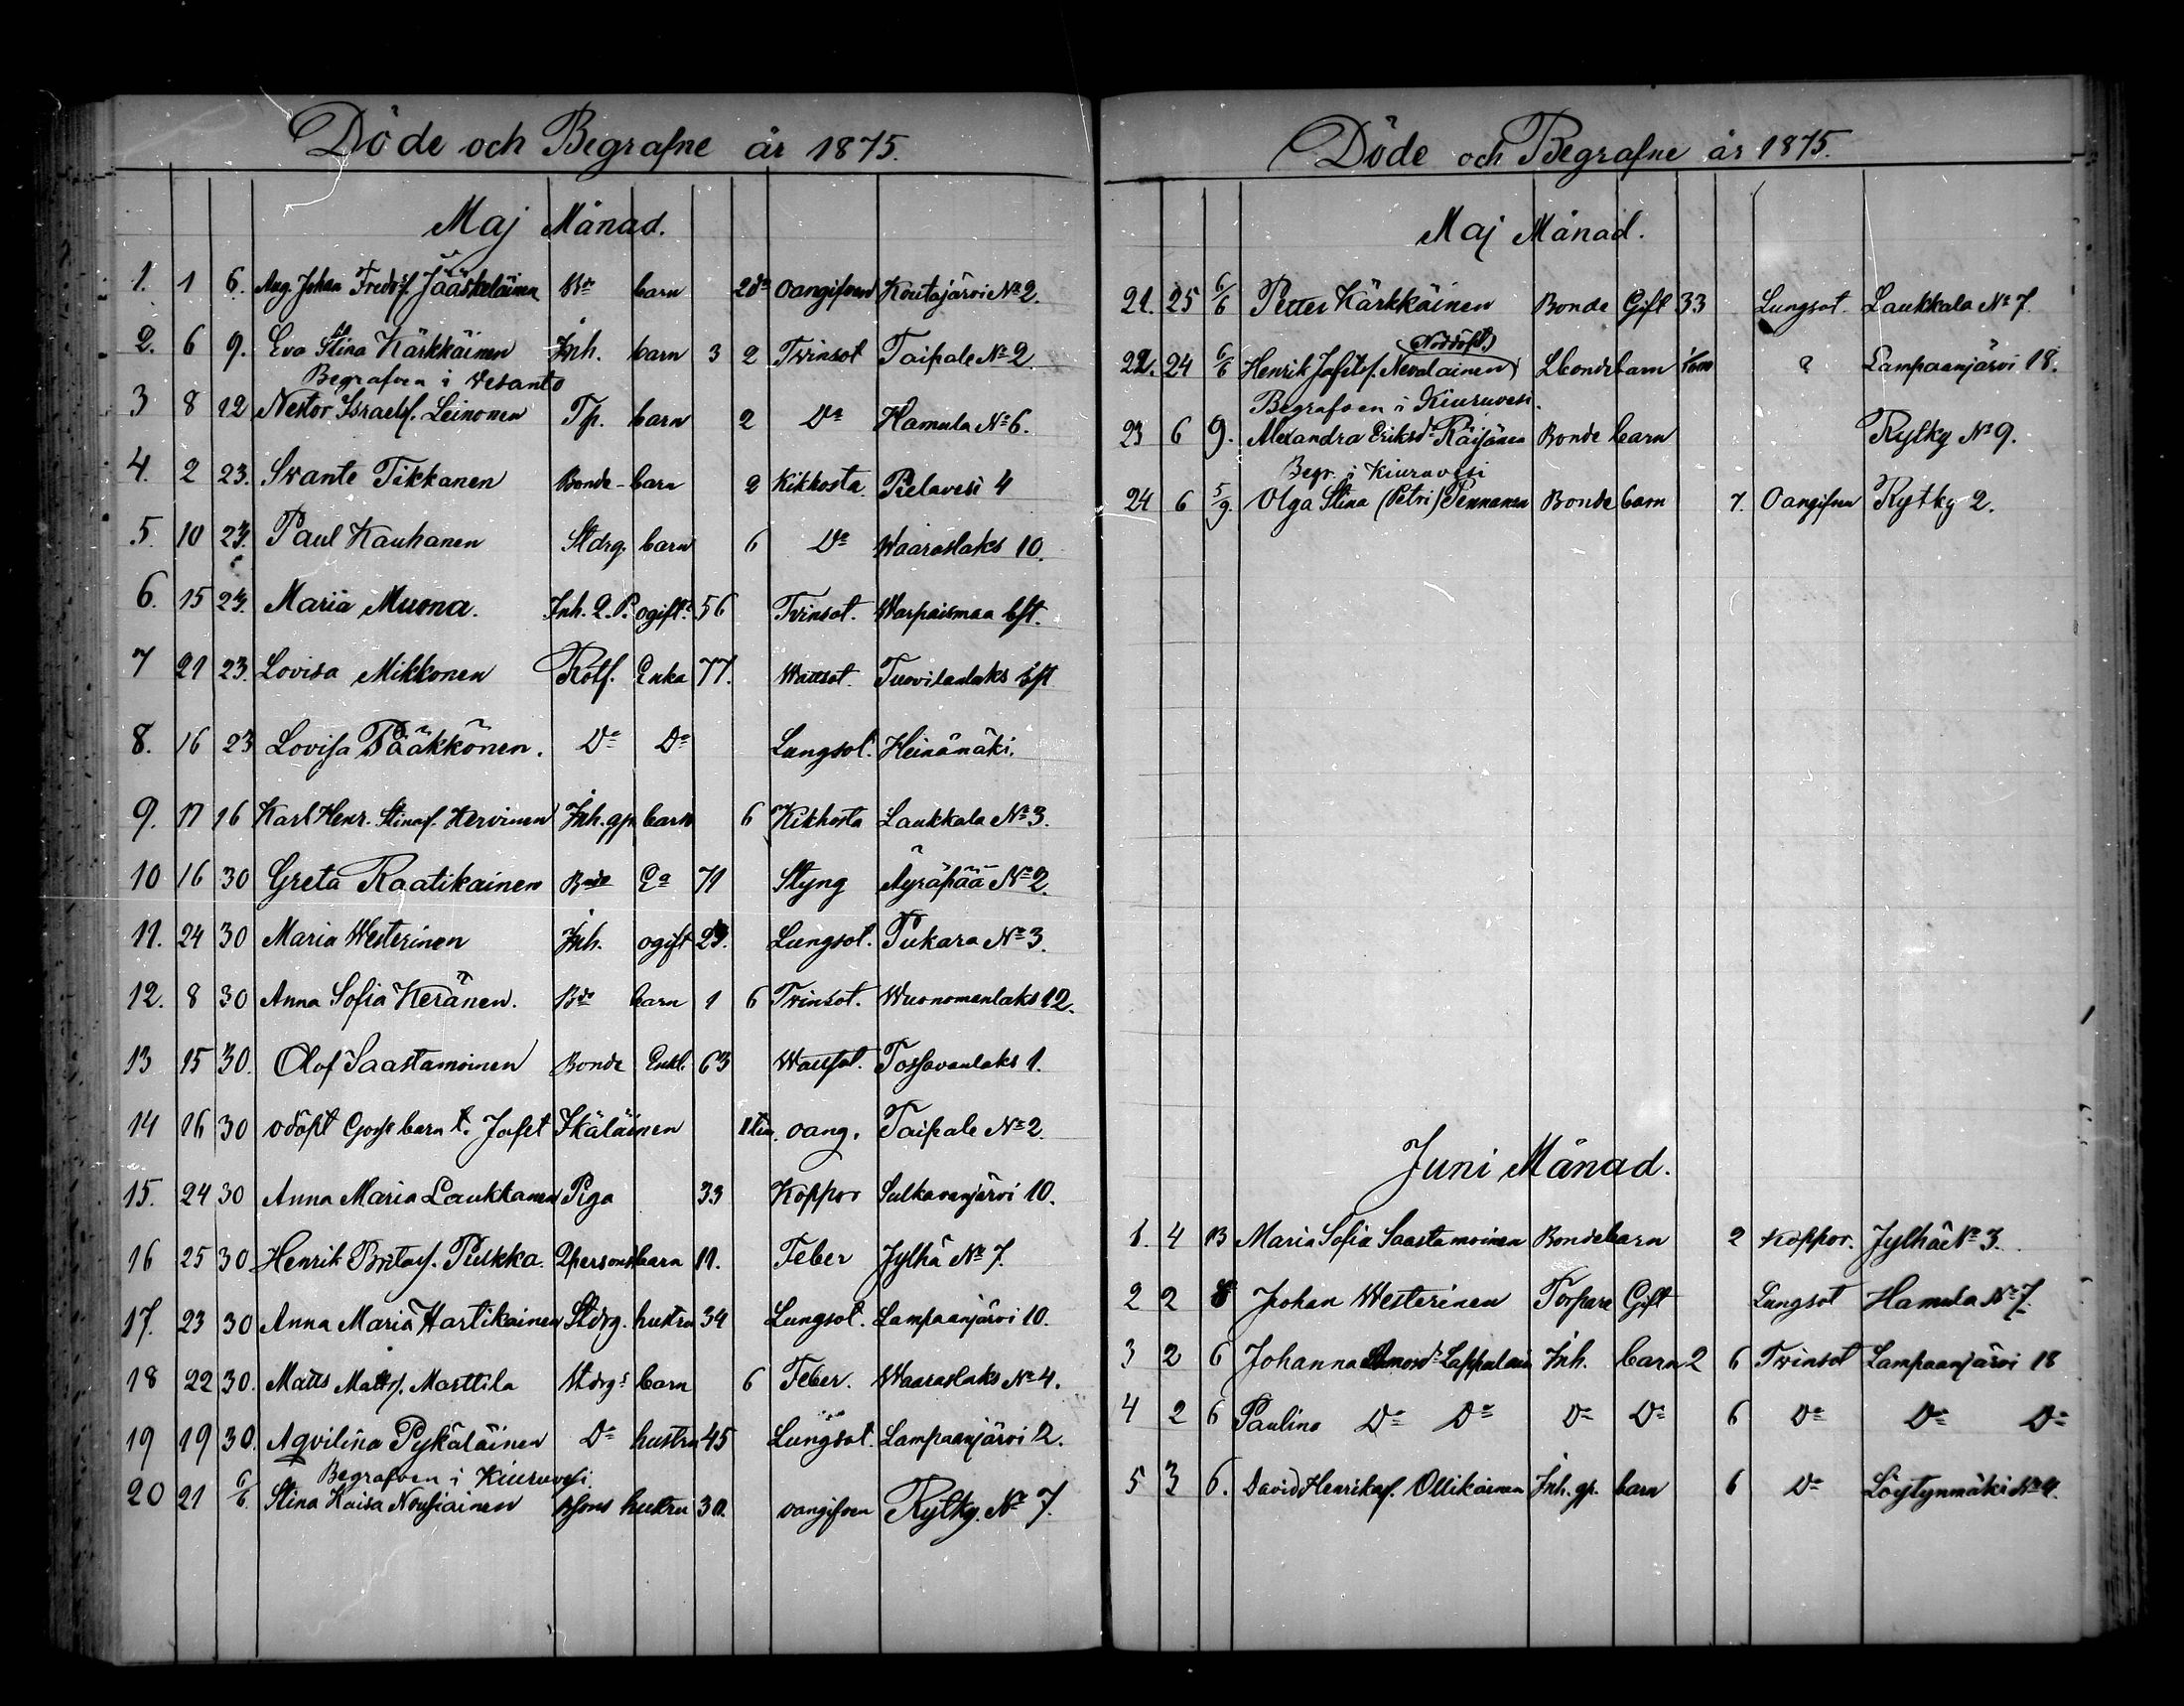 Döde och Begrafne år 1875.
Maj Månad.
1. 1 6. Aug. Johan Fredsf. Jääskeläinen Bde barn 2da oangifven Koutajärvi No 2.
2. 6 9. Eva Stina Kärkkäinen Inh. barn 3 2 Tvinsot Taipale No 2.
Begrafven i Vesanto
3 8 12 Nestor Israelsf. Leinonen Tp. barn 2 Do Hamula No 6.
4. 2 23. Svante Tikkanen Bonde- barn 2 Kikhosta Pielavesi 4
5. 10 23. Paul Kauhanen Stdrg. barn 6 Do Waaraslaks 10.
6. 15 23. Maria Muona. Inh. Q.P. ogift 56 Tvinsot. Warpaismaa bst.
7 21 23. Lovisa Mikkonen Rotf. Enka 77. Wattsot. Tuovilanlaks bst
8. 16 23 Lovisa Pääkkönen. Do Do Lungsot. Heinämäki.
9. 17 16 Karl Henr. Stinasf. Hervinen Inh. gp barn 6 Kikhosta Laukkala No 3.
10 16 30 Greta Raatikainen Bnde Ea 71 Styng Äyräpää No 2.
11. 24 30 Maria Westerinen Inh. ogift 23. Lungsot. Pukara No 3.
12. 8 30 Anna Sofia Keränen. Bde barn 1 6 Tvinsot. Wuonomenlaks 12.
13 15 30. Olof Saastamoinen Bonde Enkl. 63 Wattsot. Tossavanlaks 1.
14 16 30 odöpt Gosse barn t. Jafet Ikäläinen 1 tim. oang. Taipale No 2.
15. 24 30 Anna Maria Laukkanen Piga 33 Koppor Sulkavanjärvi 10.
16 25 30 Henrik Britasf. Pulkka. Qpersons barn 11. Feber Jylhä No 7.
17. 23 30 Anna Maria Hartikainen Stdrg. hustru 34 Lungsot. Lampaanjärvi 10.
18 22 30. Matts Mattsf. Marttila Stdrgs barn 6 Feber. Waaraslaks No 4.
19 19 30. Aqvilina Pykäläinen Do hustru 45 Lungsot. Lampaanjärvi 12.
Begrafven i Kiuruvesi
20 21 6/6 Stina Kaisa Nousiainen hustru 30. oangifven Rytky No 7.
Döde och Begrafne år 1875.
Maj Månad.
21. 25 6/6 Petter Kärkkäinen Bonde Gift 33 Lungsot. Laukkala No 7.
(Nöddöpt.)
22. 24 6/6 Henrik Jafetsf. Nevalainen Lbonde barn ? Lampaanjärvi 18.
Begrafven i Kiuruvesi.
23 6 9. Alexandra Eriksdr Räisänen Bonde barn Rytky No 9.
Begr. i Kiuruvesi
24 6 5/9. Olga Stina (Petri) Pennanen Bonde barn 7. Oangifven Rytky 2.
Juni Månad.
1. 4 13 Maria Sofia Saastamoinen Bonde barn 2 Koppor. Jylhä No 3.
2 2 8 Johan Westerinen Torpare Gift Lungsot Hamula No 7.
3 2 6 Johanna Lappalain Inh. barn 2 6 Tvinsot Lampaanjärvi 18
4 2 6 Paulina Do Do Do Do 6 Do Do Do
5 3 6. David Henriksf. Ollikainen Inh. gp. barn 6 Do Löytynmäki No 4.